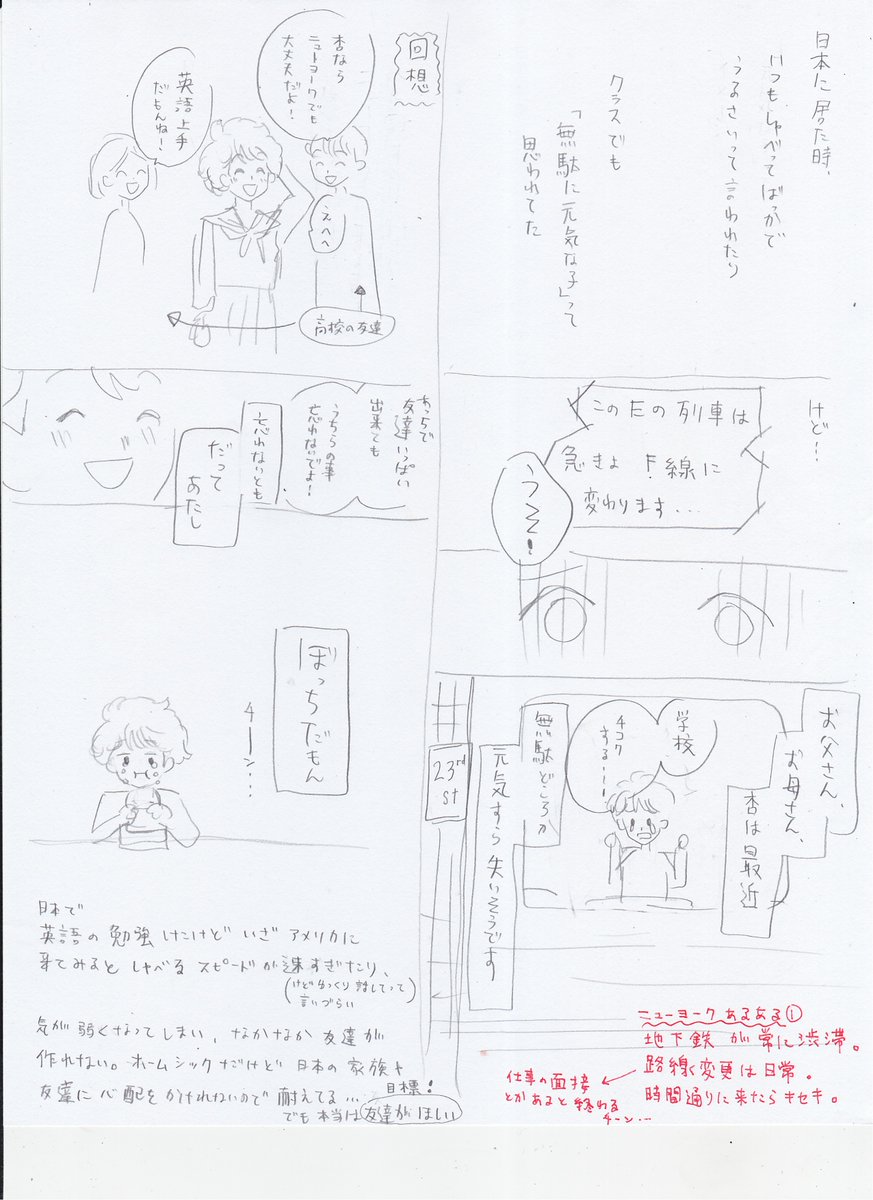 日本に居た時、
いつもしゃべってばっかで
うるさいって言われたり
クラスでも
「無駄に元気な子」って
思われてた
けど…
このEの列車は
急きょF線に
変わります...
うそ!
お父さん、
お母さん、
杏は最近
学校
チコクする…
無駄どころか
元気すら失いそうです
23rd
st
ニューヨークあるある①
地下鉄が常に渋滞。
路線変更は日常。
時間通りに来たらキセキ。
仕事の面接
とかあると終わる
チーン…
回想
杏なら
ニューヨークでも
大丈夫だよ!
英語上手
だもんね!
えへへ
高校の友達
あっちで
友達いっぱい
出来ても
うちらの事
忘れないでよ!
忘れないとも
だって
あたし
ぼっちだもん
チーン…
日本で
英語の勉強したけどいざアメリカに
来てみるとしゃべるスピードが速すぎたり、
(けどゆっくり話してって
言いづらい)
気が弱くなってしまい、なかなか友達が
作れない。ホームシックだけど日本の家族や
友達に心配をかけれないので耐えてる…
目標!
でも本当は友達がほしい